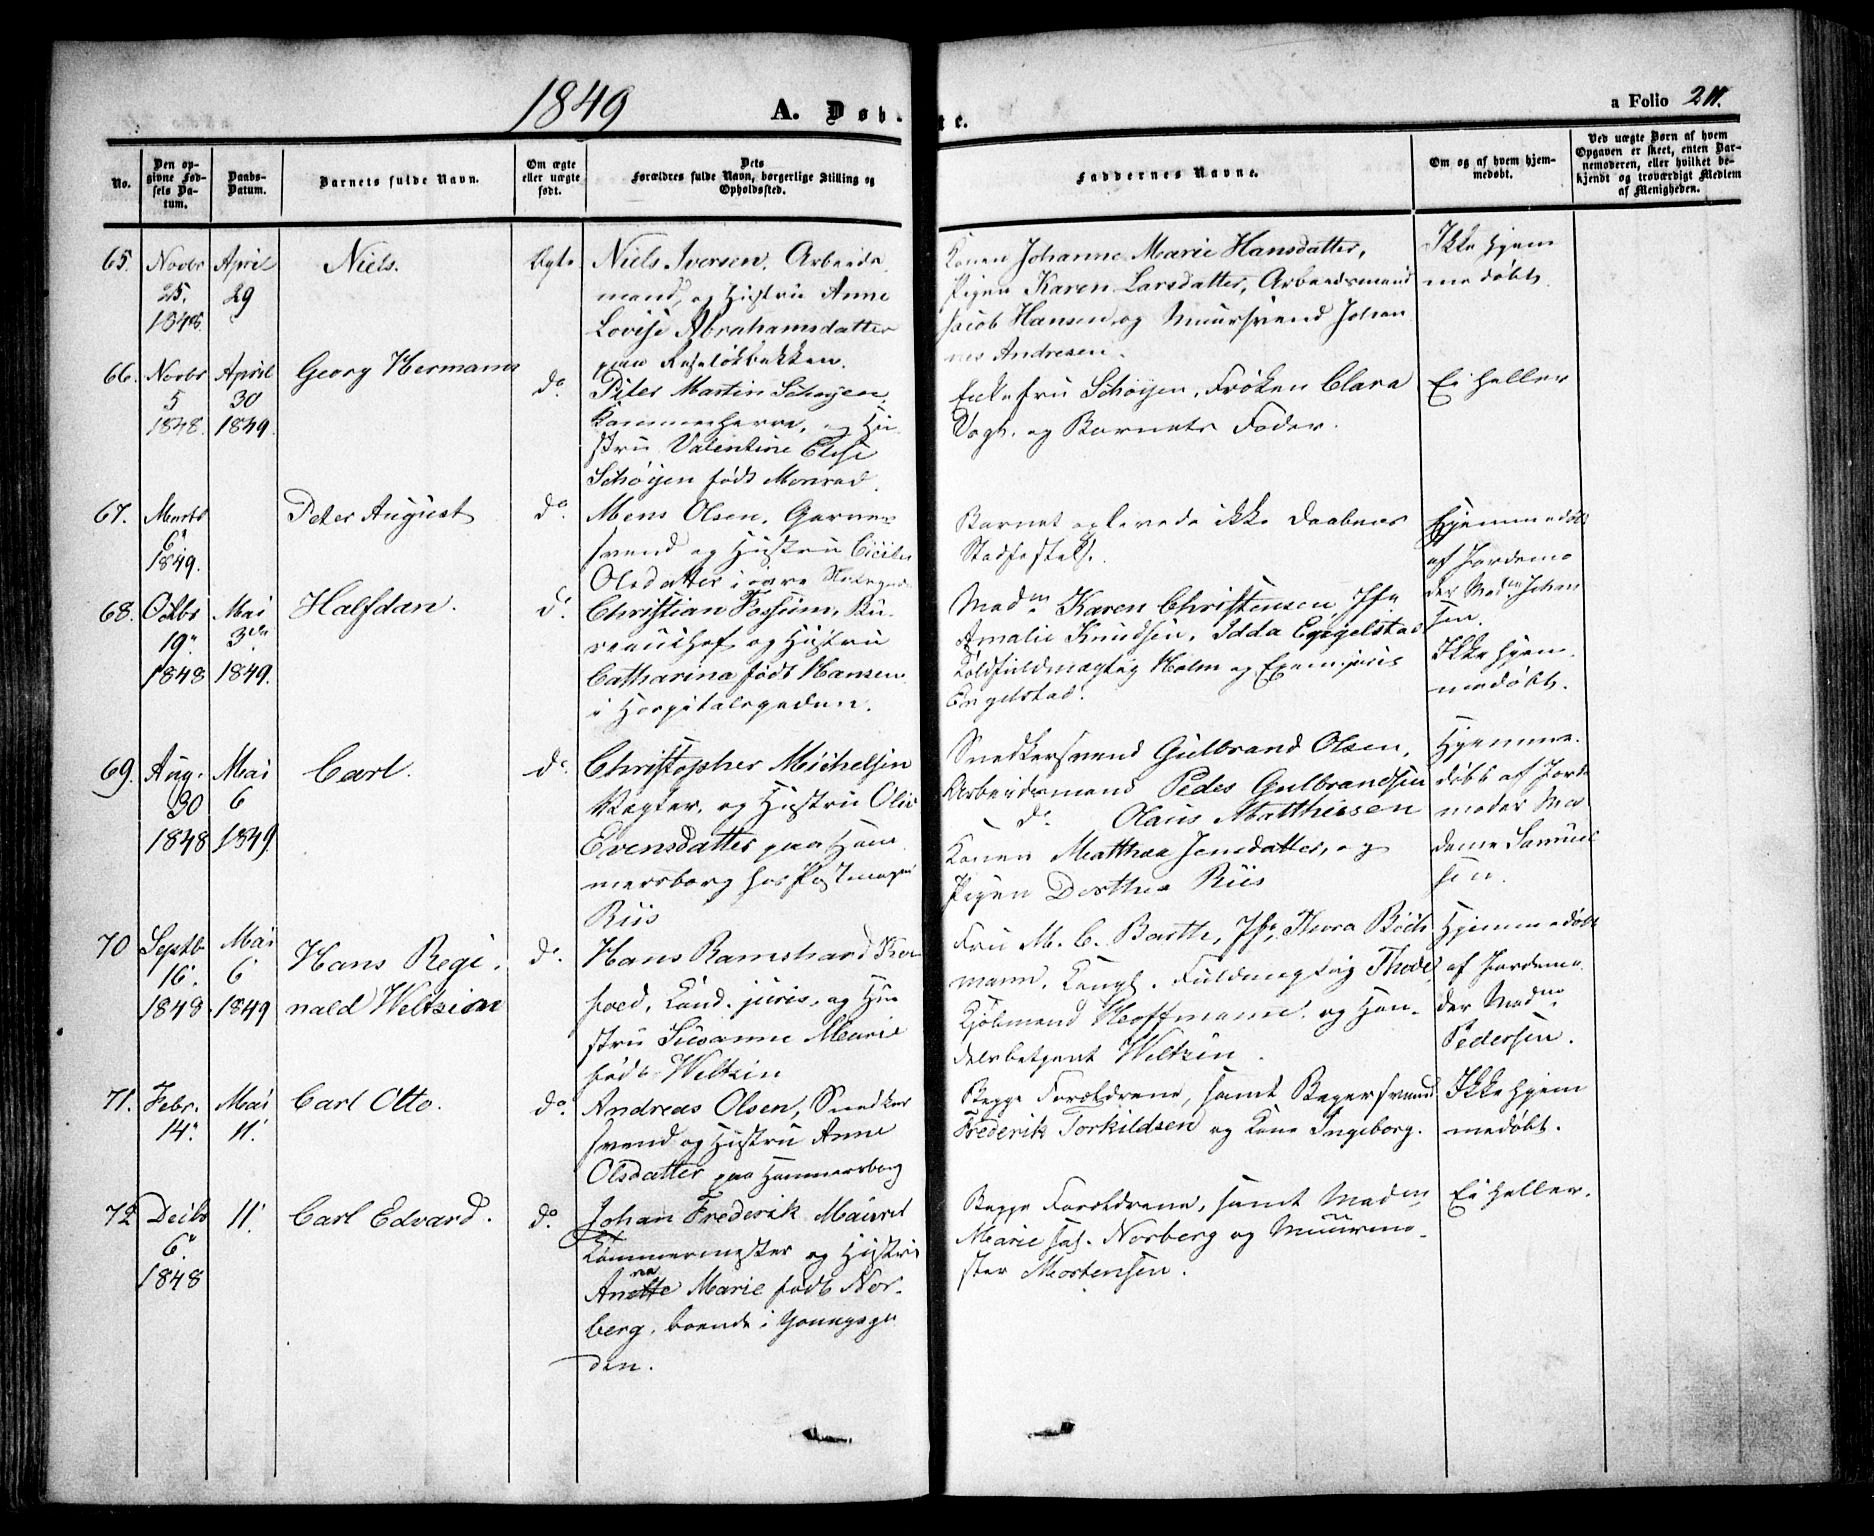 1849
A. Døb- te.
a Folio 211.
No.
Den opgivne Fødsels Datum.
Daabs-Datum.
Barnets fulde Navn.
Om ægte eller uægte født.
Dets Forældres fulde Navn, borgerlige Stilling og Opholdssted.
Faddernes Navne.
Om og af hvem hjemmedøbt.
Ved uægte Børn af hvem Opgaven er skeet, enten Barnemoderen, eller hvilket bekjendt og troværdigt Medlem af Menigheden.
65. Novbr 25. 1848
April 29
Niels.
Ægte
Niels Iversen. Arbeids
mand, og Hustru Anne
Lovise Abrahamsdatter
paa Ruseløkbakken.
Konen Johanne Marie Hansdatter,
Pigen Karen Larsdatter, Arbeidsmand
Jacob Hansen, og Muursvend Johan
nes Andresen.
Ikke hjem
medøbt.
66. Novbr 5 1848.
April 30 1849.
Georg Hermann
do.
Peter Martin Schøyen,
Kammerherre, og Hu
stru Valentine Elise
Schøyen født Monrad.
Enkefru Schøyen, Frøken Clara
Vogt. og Barnets Fader.
Ei heller
67. Marts 6" 1849.
Peter August
do.
Mens Olsen, Garver
svend og Hustru
Olsdatter i øvre
Barnet oplevede ikke Daabens
Stadfæstelse.
Hjemmedøbt
af Jordemo
der Madm Johan
sen.
68. Octbr 19" 1848
Mai 3die 1849.
Halfdan.
do.
Christian Fossum, Bu
reauchef og Hustru
Catharina født Hansen
i Hospitalsgaden.
Madm Karen Christensen, Jfr
Amalie Knudsen, Idda Engelstad
Toldfuldmægtig Holm og Exam. juris
Engelstad.
Ikke hjem
medøbt.
69. Aug. 30 1848
Mai 6 1849.
Carl.
do.
Christopher Michelsen
Vægter, og Hustru Olia
Evensdatter paa Ham
mersborg hos Postmager
Riis
Snedkersvend Gulbrand Olsen,
Arbeidsmand Peder Gulbrandsen
do. Olaus Matthiesen
Konen Matthea Jensdatter, og
Pigen Dorthea Riis
Hjemme
døbt af Jorde
moder Ma
dame Samuel
sen.
70 Septb. 16. 1848
Mai 6 1849
Hans Regi
nald Weltzien
do.
Hans Ramshard
foed, Cand. juris, og Hu
stru Susanne Marie
født Weltzin
Fru M. C. Barth, Jfr. Thora Bøds
mann, Fuldmægtig Thode,
Kjøbmand Hoffmann, og Han
delsbetjent Weltzin.
Hjemmedøbt
af Jordemo
der Madme
Pedersen.
71. Febr. 14.
Mai 11.
Carl Otto.
do.
Andreas Olsen, Snedker
svend og Hustru Anne
Olsdatter paa Hammersborg
Begge Forældrene, samt Bagersvend
Frederik Torkildsen og Kone Ingeborg.
Ikke hjem
medøbt.
72 Decbr 6" 1848
11.
Carl Edvard.
do.
Johan Frederik
Tømmermester og Hustru
Anette na Marie født Nor-
berg, boende i Youngsga
den.
Begge Forældrene, samt Madm
Marie sal. Norberg og Muurme
ster Mortensen.
Ei heller.